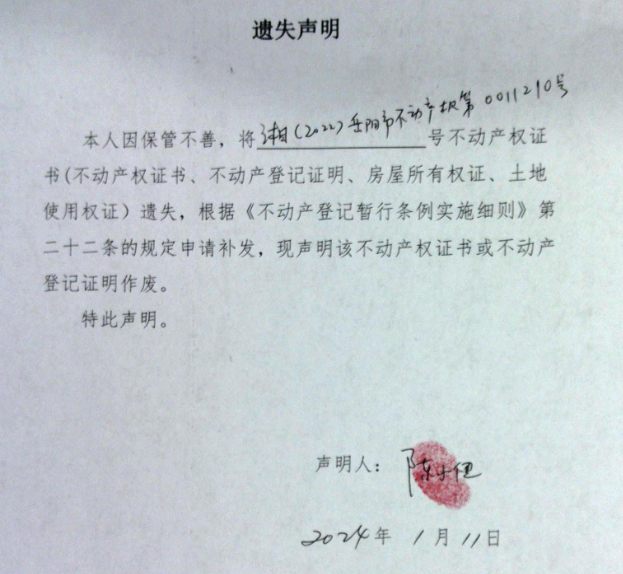 遗失声明
本人因保管不善，将湘(2022)岳阳市不动产权第0011210号号不动产权证
书(不动产权证书、不动产登记证明、房屋所有权证、土地
使用权证）遗失，根据《不动产登记暂行条例实施细则》第
二十二条的规定申请补发，现声明该不动产权证书或不动产
登记证明作废。
特此声明。
声明人：陈
2024年1月11日